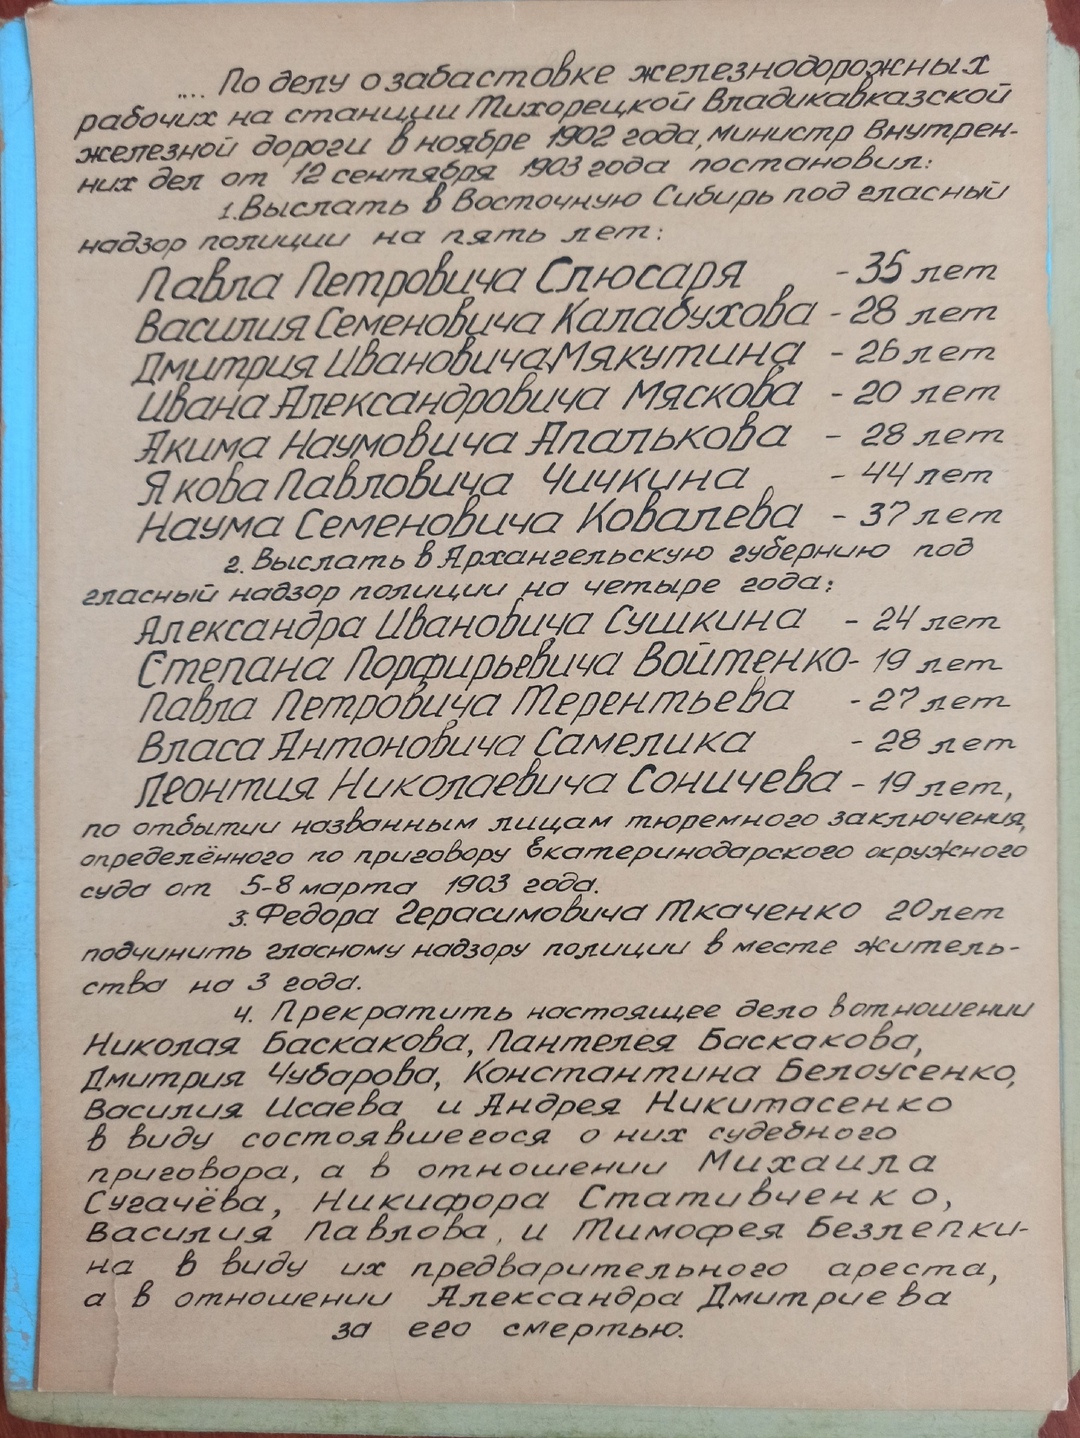 .... По делу о забастовке железнодорожных
рабочих на станции Тихорецкой Владикавказской
железной дороги в ноябре 1902 года, министр Внутрен-
них дел от 12 сентября 1903 года постановил:
1. Выслать в Восточную Сибирь под гласный
надзор полиции на пять лет:
Павла Петровича Слюсаря - 35 лет
Василия Семеновича Калабухова - 28 лет
Дмитрия Ивановича Мякутина - 26 лет
Ивана Александровича Мяскова - 20 лет
Акима Наумовича Апалькова - 28 лет
Якова Павловича Чичкина - 44 лет
Наума Семеновича Ковалева - 37 лет
2. Выслать в Архангельскую губернию под
гласный надзор полиции на четыре года:
Александра Ивановича Сушкина - 24 лет
Степана Порфирьевича Войтенко - 19 лет
Павла Петровича Терентьева - 27 лет
Власа Антоновича Самелика - 28 лет
Леонтия Николаевича Соничева - 19 лет,
по отбытии названным лицам тюремного заключения,
определённого по приговору Екатеринодарского окружного
суда от 5-8 марта 1903 года.
3. Федора Герасимовича Ткаченко 20 лет
подчинить гласному надзору полиции в месте житель-
ства на 3 года.
4. Прекратить настоящее дело в отношении
Николая Баскакова, Пантелея Баскакова,
Дмитрия Чубарова, Константина Белоусенко,
Василия Исаева и Андрея Никитасенко
в виду состоявшегося о них судебного
приговора, а в отношении Михаила
Сугачёва, Никифора Стативченко,
Василия Павлова, и Тимофея Безлепки-
на в виду их предварительного ареста,
а в отношении Александра Дмитриева
за его смертью.